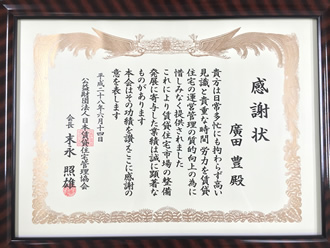 感謝状
廣田 豊 殿
貴方は日常多忙にも拘わらず高い
見識と貴重な時間 労力を賃貸
住宅の運営管理の質的向上の為に
惜しみなく提供されました
これにより賃貸住宅市場の整備
発展に寄与した業績は誠に顕著な
ものがあります
本会はその功績を讃えここに感謝の
意を表します
平成二十八年六月十四日
公益財団法人日本賃貸住宅管理協会
会長 末永 照雄